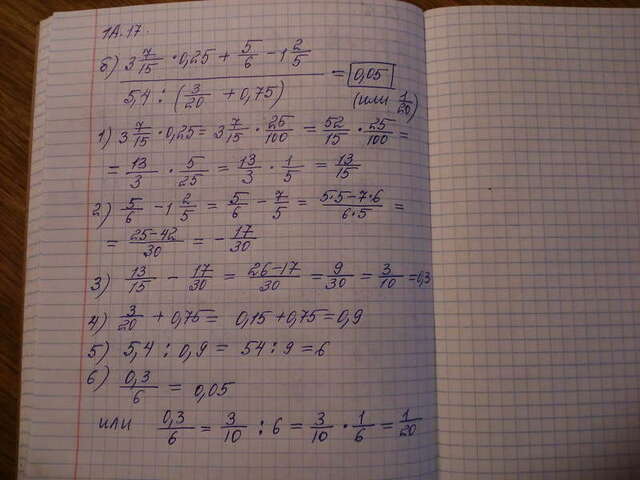 1А.17.
б) 3 7/15 · 0,25 + 5/6 − 1 2/5
/ 5,4 : (3/20 + 0,75) = 0,05
(или 1/20)
1) 3 7/15 · 0,25 = 3 7/15 · 25/100 = 52/15 · 25/100 =
= 13/3 · 5/25 = 13/3 · 1/5 = 13/15
2) 5/6 − 1 2/5 = 5/6 − 7/5 = 5·5−7·6/6·5 =
= 25−42/30 = − 17/30
3) 13/15 − 17/30 = 26−17/30 = 9/30 = 3/10 = 0,3
4) 3/20 + 0,75 = 0,15 + 0,75 = 0,9
5) 5,4 : 0,9 = 54 : 9 = 6
6) 0,3/6 = 0,05
или 0,3/6 = 3/10 : 6 = 3/10 · 1/6 = 1/20